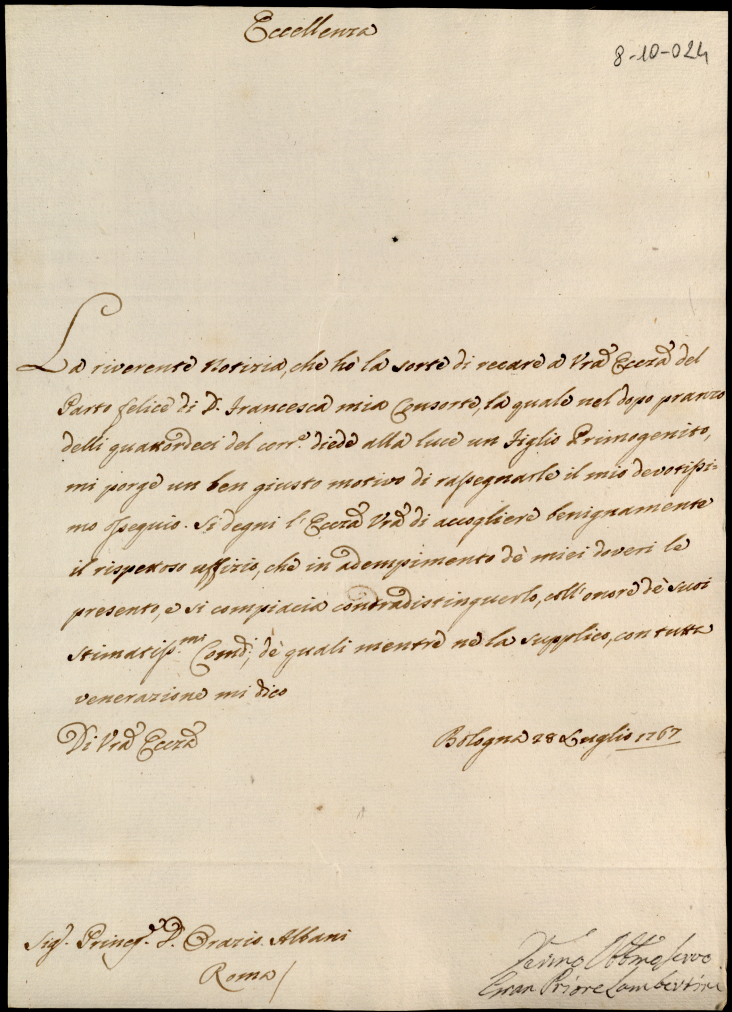 Eccellenza
8-10-024
La riverente Notizia, che hò la sorte di recare a Vrã Ecczã del
Parto felice di D. Francesca mia Consorte, la quale nel dopo pranzo
delli quattordeci del corr.e diede alla luce un Figlio Primogenito,
mi porge un ben giusto motivo di rassegnarle il mio devotissi-
mo ossequio. Si degni l'Ecczã Vrã di accogliere benignamente
il rispettoso uffizio, che in adempimento dè miei doveri le
presento, e si compiacia contradistinguerlo, coll'onore dè suoi
stimatiss.mi Comdi, dè quali mentre ne la supplico, con tutta
venerazione mi dico
Di Vrã Ecczã
Bologna 28 Luglio 1767
Sig.r Princ.e D. Orazio Albani
Roma/
Obbmo Servo
Gran Priore Lambertini